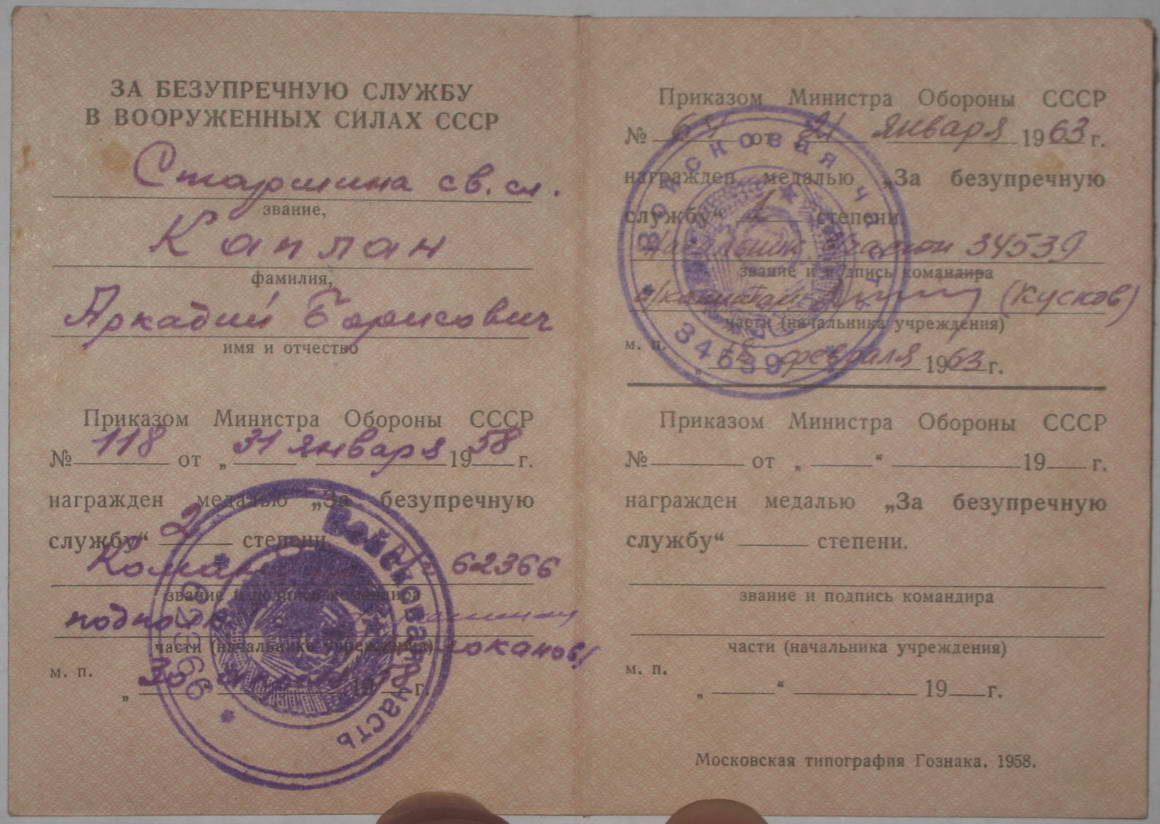 ЗА БЕЗУПРЕЧНУЮ СЛУЖБУ
В ВООРУЖЕННЫХ СИЛАХ СССР
Старшина св. сл.
звание,
Каплан
фамилия,
Аркадий Борисович
имя и отчество
Приказом Министра Обороны СССР
№ 118 от „ 31 января 1958 г.
награжден медалью „За безупречную
службу“ 2 степени.
62366
звание и подпись командира
части (начальника учреждения)
м. п.
Войсковая часть
62366
Приказом Министра Обороны СССР
№ 64 от 21 января 1963 г.
награжден медалью „За безупречную
службу“ 1 степени.
34539
звание и подпись командира
(Кусков)
части (начальника учреждения)
м. п. февраля 1963 г.
Войсковая часть
34539
Приказом Министра Обороны СССР
№ от „ “ 19 г.
награжден медалью „За безупречную
службу“ степени.
звание и подпись командира
части (начальника учреждения)
м. п.
„ “ 19 г.
Московская типография Гознака. 1958.